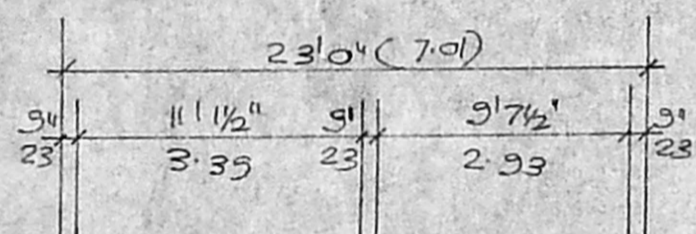 23'0" (7.01)
9" 11'1½" 9" 9'7½" 9"
23 3.39 23 2.93 23